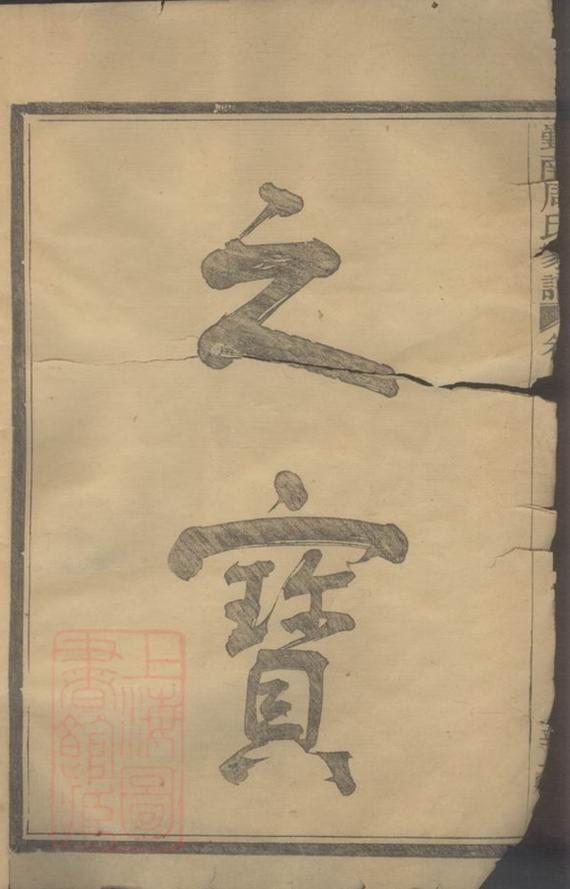 之寶
周氏家譜
上海圖
書館藏